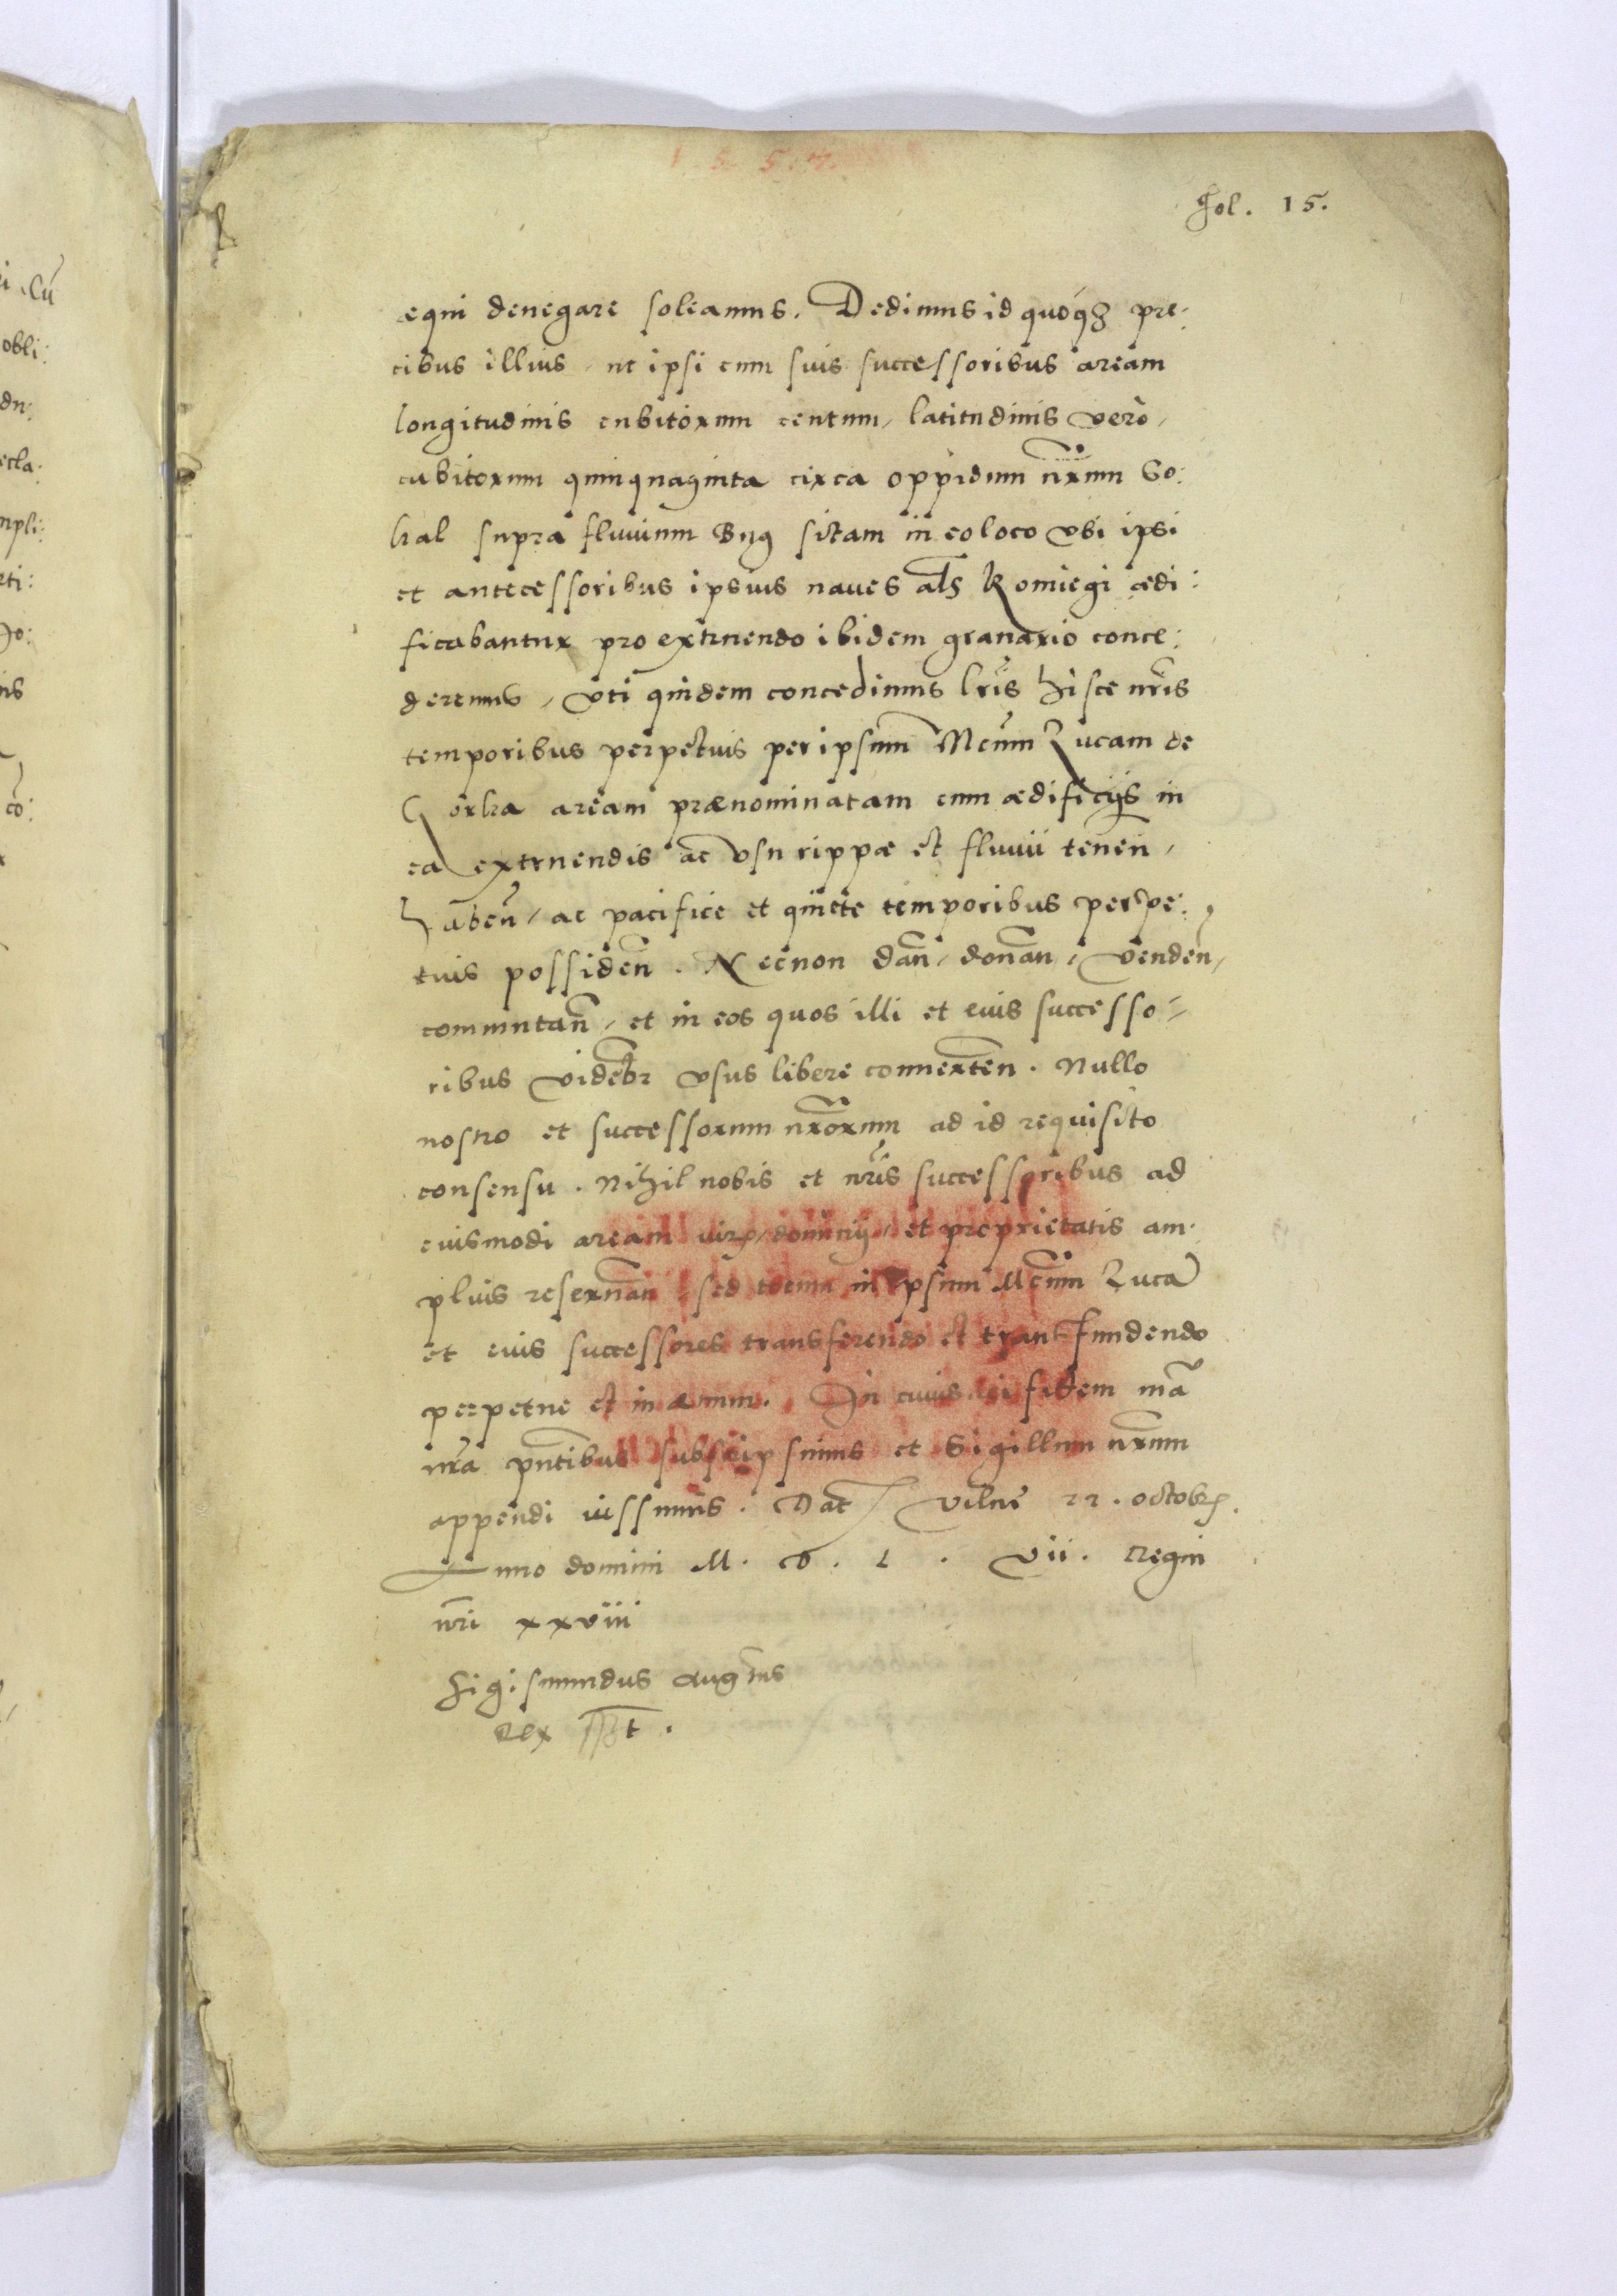 1.5.5.7.
Fol. 15.
æqui denegare soleamus. Dedimus id quoq3 pre:
cibus illius, ut ipsi cum suis successoribus aream
longitudinis cubitorum centum, latitudinis vero,
cubitorum quinquaginta circa oppidum nrum So:
kal supra fluuium Bug sitam in eo loco vbi ipsi
et antecessoribus ipsius naues als Komiegi ædi:
ficabantur pro extruendo ibidem granario conce:
deremus, vti quidem concedimus lris hisce nris
temporibus perpetuis per ipsum Mcum Lucam de
Gorka aream prænominatam cum ædificijs in
ea extruendis ac vsu rippæ et fluuii tenen,
haben, ac pacifice et quiete temporibus perpe:
tuis possiden. Necnon dan, donan, venden,
commutan, et in eos quos illi et eius successo=
ribus videbr vsus libere conuerten. Nullo
nostro et successorum nrorum ad id requisito
consensu. Nihil nobis et nris successoribus ad
eiusmodi aream iuris, dominij, et proprietatis am:
plius reseruan, sed totum in ipsum Mcum Luca
et eius successores transferendo et transfundendo
perpetue et in æuum. In cuius rei fidem ma
nra pntibus subscripsimus et Sigillum nrum
appendi iussimus. Dat Vilne 22. octobr.
Anno domini M. D. L. vii. Regni
nri xxviii
Sigismundus Augtus
Rex sspt.